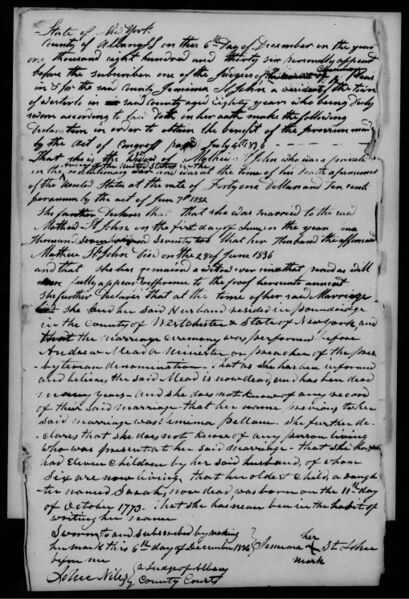 State of New York
County of Albany SS on this 6th Day of December in the year
one thousand eight hundred and thirty six personally appeared
before the subscriber one of the Judges of the Common Pleas
in & for the said County Jemima St John a resident of the town
of in said county aged Eighty years who being duly
sworn according to law doth on her oath make the following
Declaration in order to obtain the benefit of the provision made
by the act of Congress passed July 4th 1836
That she is the widow of Mathew St John who was a private
in the army of the United States in the revolutionary war and was at the time of his Death a pensioner of
the United States at the rate of Forty one Dollars and ten cents
per annum by the act of June 7th 1832
She further Declares that she was married to the said
Mathew St John on the first day of in the year one
Thousand seven and seventy two that her Husband the aforesaid
Mathew St John Died on the 28 of June 1836
and that she has remained a widow ever since that as will
more fully appear reference to the proof hereunto annexed
she further Declares that at the time of her said Marriage
she and her said Husband resided in Poundridge
in the County of Westchester & State of New York and
that the marriage ceremony was performed before
Andrew Mead a Minister or preacher of the pres-
byterian denomination - that as she has been informed
and believes the said Mead is now dead, and has been dead
many years - and she does not know of any record
of their said marriage - that her name previous to her
said marriage was Jemima Bellame. She further de-
clares that she does not know of any person living
who was present at her said marriage - that she has
had Eleven Children by her said husband, of whom
Six are now living, that her oldest Child, a daugh-
ter named Sarah, now dead was born on the 11th day
of October 1773. That she has never been in the habit of
writing her name
Sworn to and Subscribed by making
her mark this 6th day of December 1836
before me
Jemima her X mark St John
John Niles a Judge of Albany
County Courts